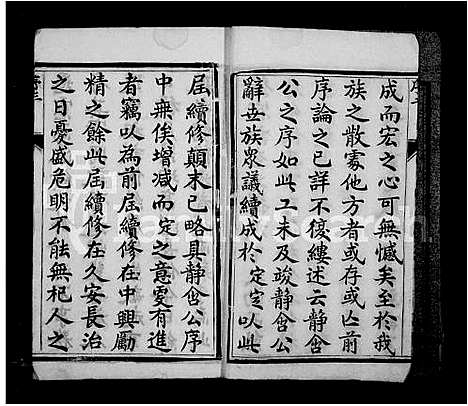 成而宏之心可無憾矣至於我
族之散寡他方者或存或亾前
序論之已詳不復縷述云静舍
公之序如此工未及竣静舍公
辭世族眾議續成於定定以此
屆續修顛末已略具静舍公序
中無俟增減而定之意更有進
者竊以為前屆續修在中興勵
精之餘此屆續修在久安長治
之日憂盛危明不能無杞人之